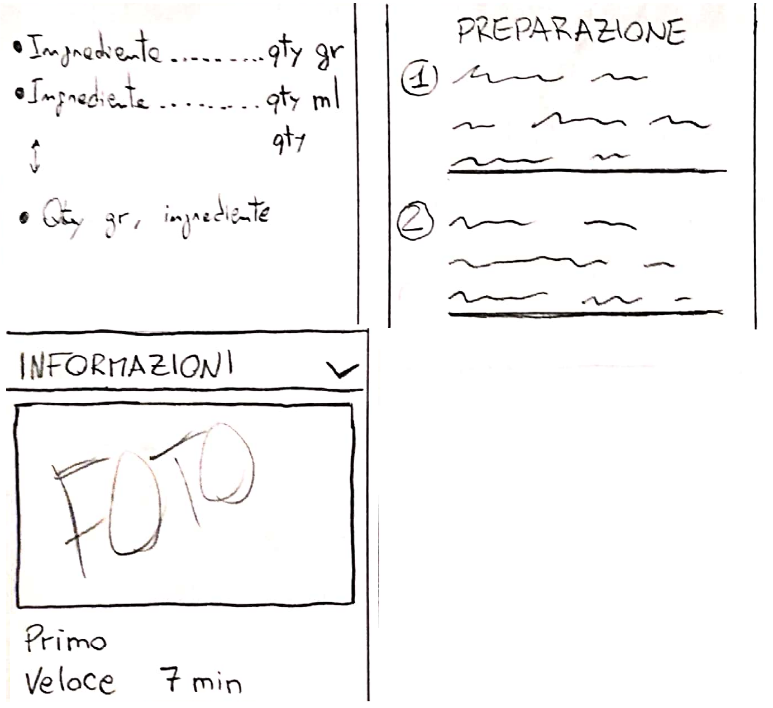 • Ingrediente ......... qty gr
• Ingrediente ......... qty ml
qty
• Qty gr, ingrediente
PREPARAZIONE
1
2
INFORMAZIONI
FOTO
Primo
Veloce 7 min